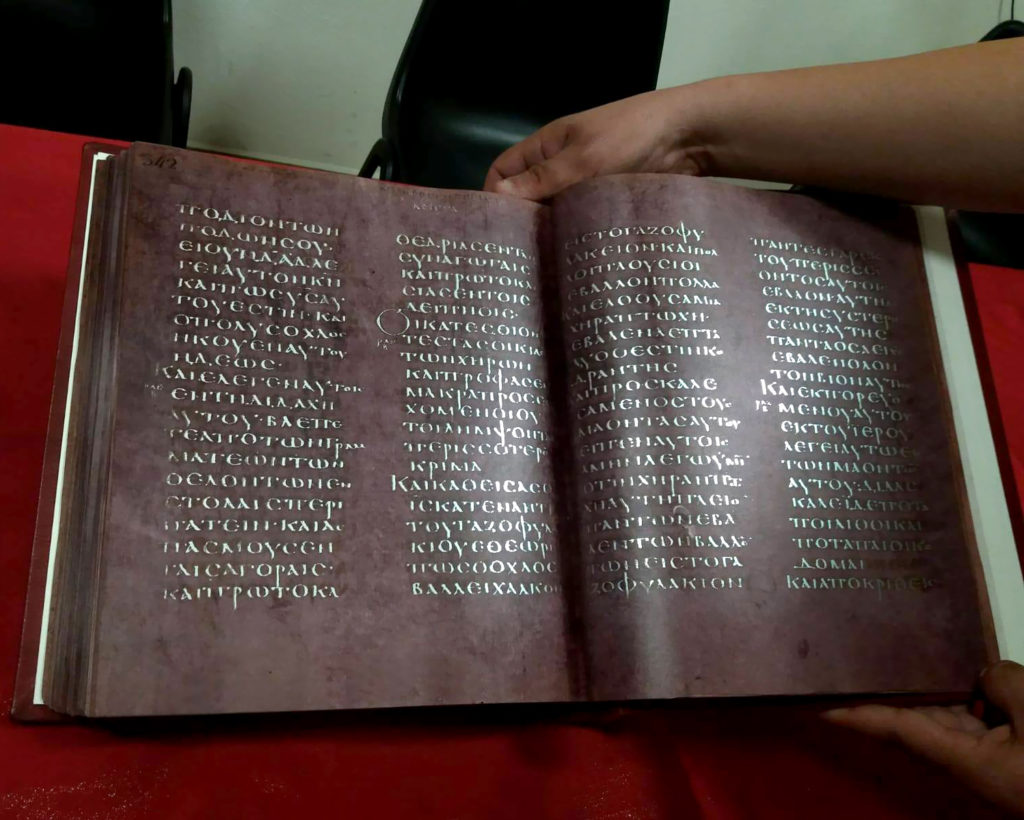 342
ΠΟΔΙΟΝΤΩΝ
ΠΟΔΩΝϹΟΥ·
ΕΙΟΥΝΔΑΔΛΕ
ΓΕΙΑΥΤΟΝΚΝ
ΚΑΙΠΩϹΥϹΑΥ
ΤΟΥΕϹΤΙΝ·ΚΑΙ
ΟΠΟΛΥϹΟΧΛΟϹ
ΗΚΟΥΕΝΑΥΤΟΥ
ΗΔΕΩϹ·
ΚΑΙΕΛΕΓΕΝΑΥΤΟΙϹ
ΕΝΤΗΔΙΔΑΧΗ
ΑΥΤΟΥ·ΒΛΕΠΕ
ΤΕΑΠΟΤΩΝΓΡΑΜ
ΜΑΤΕΩΝΤΩΝ
ΘΕΛΟΝΤΩΝΕΝ
ϹΤΟΛΑΙϹΠΕΡΙ
ΠΑΤΕΙΝ·ΚΑΙΑϹ
ΠΑϹΜΟΥϹΕΝ
ΤΑΙϹΑΓΟΡΑΙϹ·
ΚΑΙΠΡΩΤΟΚΑ
ΘΕΔΡΙΑϹΕΝΤΑΙϹ
ϹΥΝΑΓΩΓΑΙϹ
ΚΑΙΠΡΩΤΟΚΛΙ
ϹΙΑϹΕΝΤΟΙϹ
ΔΕΙΠΝΟΙϹ·
ΟΙΚΑΤΕϹΘΙΟΝ
ΤΕϹΤΑϹΟΙΚΙΑϹ
ΤΩΝΧΗΡΩΝ
ΚΑΙΠΡΟΦΑϹΕΙ
ΜΑΚΡΑΠΡΟϹΕΥ
ΧΟΜΕΝΟΙΟΥ
ΤΟΙΛΗΜΨΟΝΤΑΙ
ΠΕΡΙϹϹΟΤΕΡΟΝ
ΚΡΙΜΑ
ΚΑΙΚΑΘΕΙϹΑϹΟ
ΙϹΚΑΤΕΝΑΝΤΙ
ΤΟΥΓΑΖΟΦΥΛΑ
ΚΙΟΥΕΘΕΩΡΙ
ΠΩϹΟΟΧΛΟϹ
ΒΑΛΛΕΙΧΑΛΚΟΝ
ΕΙϹΤΟΓΑΖΟΦΥ
ΛΑΚΕΙΟΝ·ΚΑΙΠΟΛ
ΛΟΙΠΛΟΥϹΙΟΙ
ΕΒΑΛΛΟΝΠΟΛΛΑ
ΚΑΙΕΛΘΟΥϹΑΜΙΑ
ΧΗΡΑΠΤΩΧΗ·
ΕΒΑΛΕΛΕΠΤΑ
ΔΥΟΟΕϹΤΙΝΚΟ
ΔΡΑΝΤΗϹ
ΚΑΙΠΡΟϹΚΑΛΕ
ϹΑΜΕΝΟϹΤΟΥϹ
ΜΑΘΗΤΑϹΑΥΤΟΥ
ΕΙΠΕΝΑΥΤΟΙϹ·
ΑΜΗΝΛΕΓΩΥΜΙΝ
ΟΤΙΗΧΗΡΑΗΠΤΩ
ΧΗΑΥΤΗΠΛΕΙΟΝ
ΠΑΝΤΩΝΕΒΑ
ΛΕΝΤΩΝΒΑΛΛΟΝ
ΤΩΝΕΙϹΤΟΓΑ
ΖΟΦΥΛΑΚΙΟΝ
ΠΑΝΤΕϹΓΑΡΕΚ
ΤΟΥΠΕΡΙϹϹΕΥ
ΟΝΤΟϹΑΥΤΟΙϹ
ΕΒΑΛΟΝ·ΑΥΤΗ
ΕΚΤΗϹΥϹΤΕΡΗ
ϹΕΩϹΑΥΤΗϹ
ΠΑΝΤΑΟϹΑΕΙΧΕΝ
ΕΒΑΛΕΝΟΛΟΝ
ΤΟΝΒΙΟΝΑΥΤΗϹ
ΚΑΙΕΚΠΟΡΕΥΟ
ΜΕΝΟΥΑΥΤΟΥ
ΕΚΤΟΥΙΕΡΟΥ
ΛΕΓΕΙΑΥΤΩΕΙϹ
ΤΩΝΜΑΘΗΤΩΝ
ΑΥΤΟΥ·ΔΙΔΑϹ
ΚΑΛΕΙΔΕΠΟΤΑ
ΠΟΙΛΙΘΟΙΚΑΙ
ΠΟΤΑΠΑΙΟΙΚΟ
ΔΟΜΑΙ
ΚΑΙΑΠΟΚΡΙΘΕΙϹ